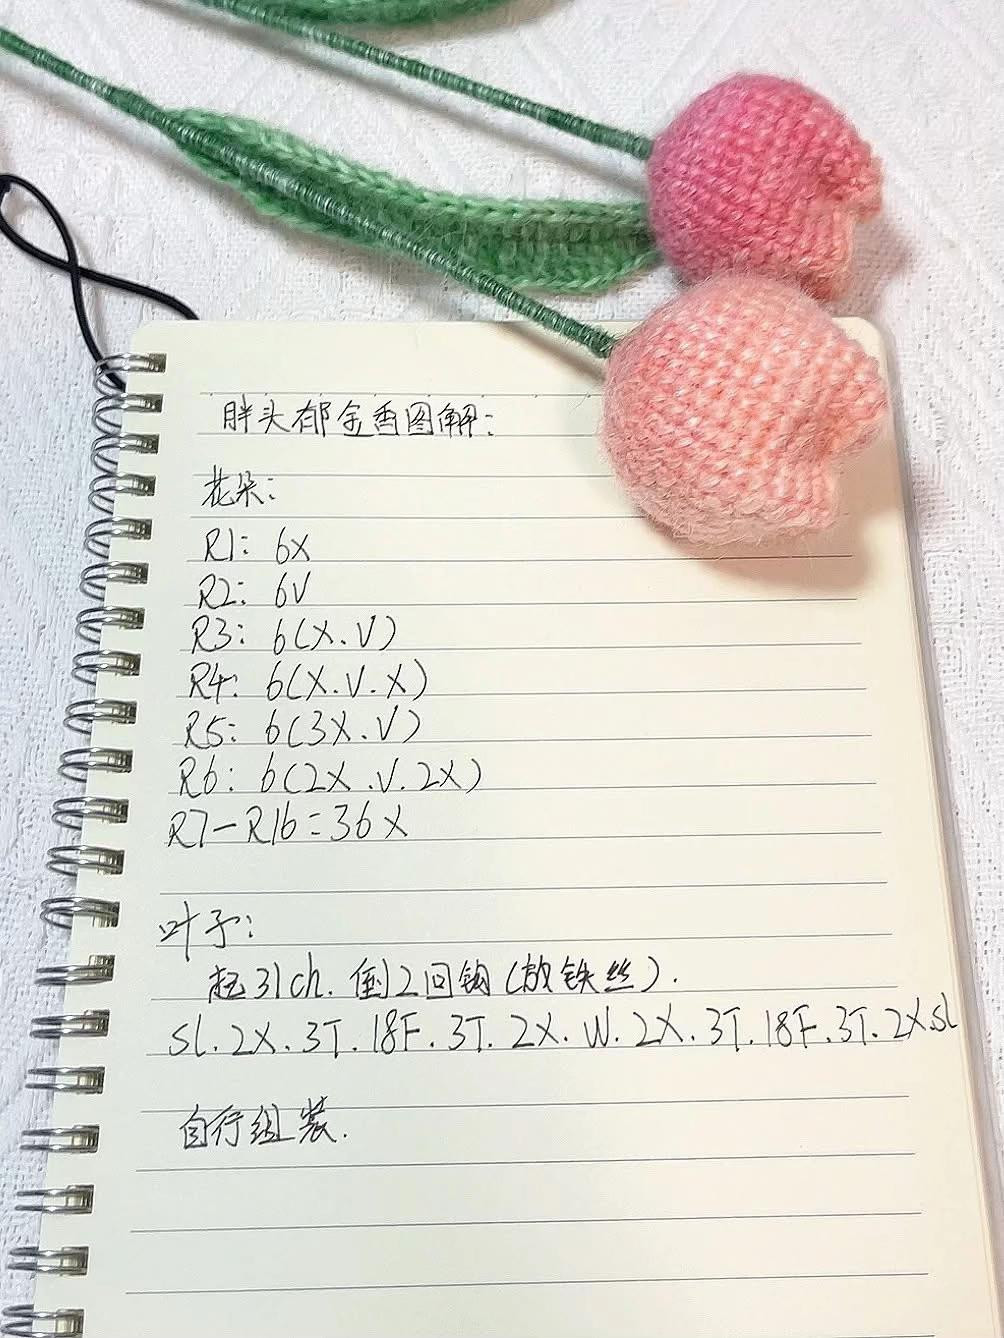 胖头郁金香图解:
花朵:
R1: 6X
R2: 6V
R3: 6(X.V)
R4: 6(X.V.X)
R5: 6(3X.V)
R6: 6(2X.V.2X)
R7-R16=36X
叶子:
起31ch.倒2回钩(放铁丝).
sl.2X.3T.18F.3T.2X.W.2X.3T.18F.3T.2X.sl
自行组装.